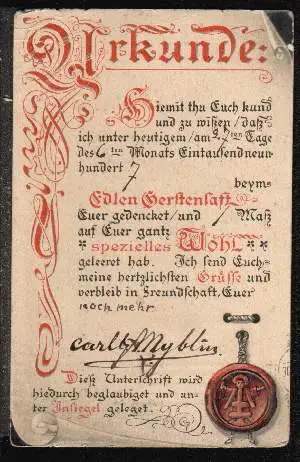 Urkunde:
Hiemit thu Euch kund
und zu wißen/daß
ich unter heutigem/am 27ten Tage
des 6ten Monats Eintausendneun-
hundert 7
beym
Edlen Gerstensaft
Euer gedencket/und 1 Maß
auf Euer gantz
spezielles Wohl
geleeret hab. Ich send Euch
meine hertzlichsten Grüsse und
verbleib in Freundschaft, Euer
noch mehr
Dieß Unterschrift wird
hiedurch beglaubiget und un-
ter Insiegel geleget.